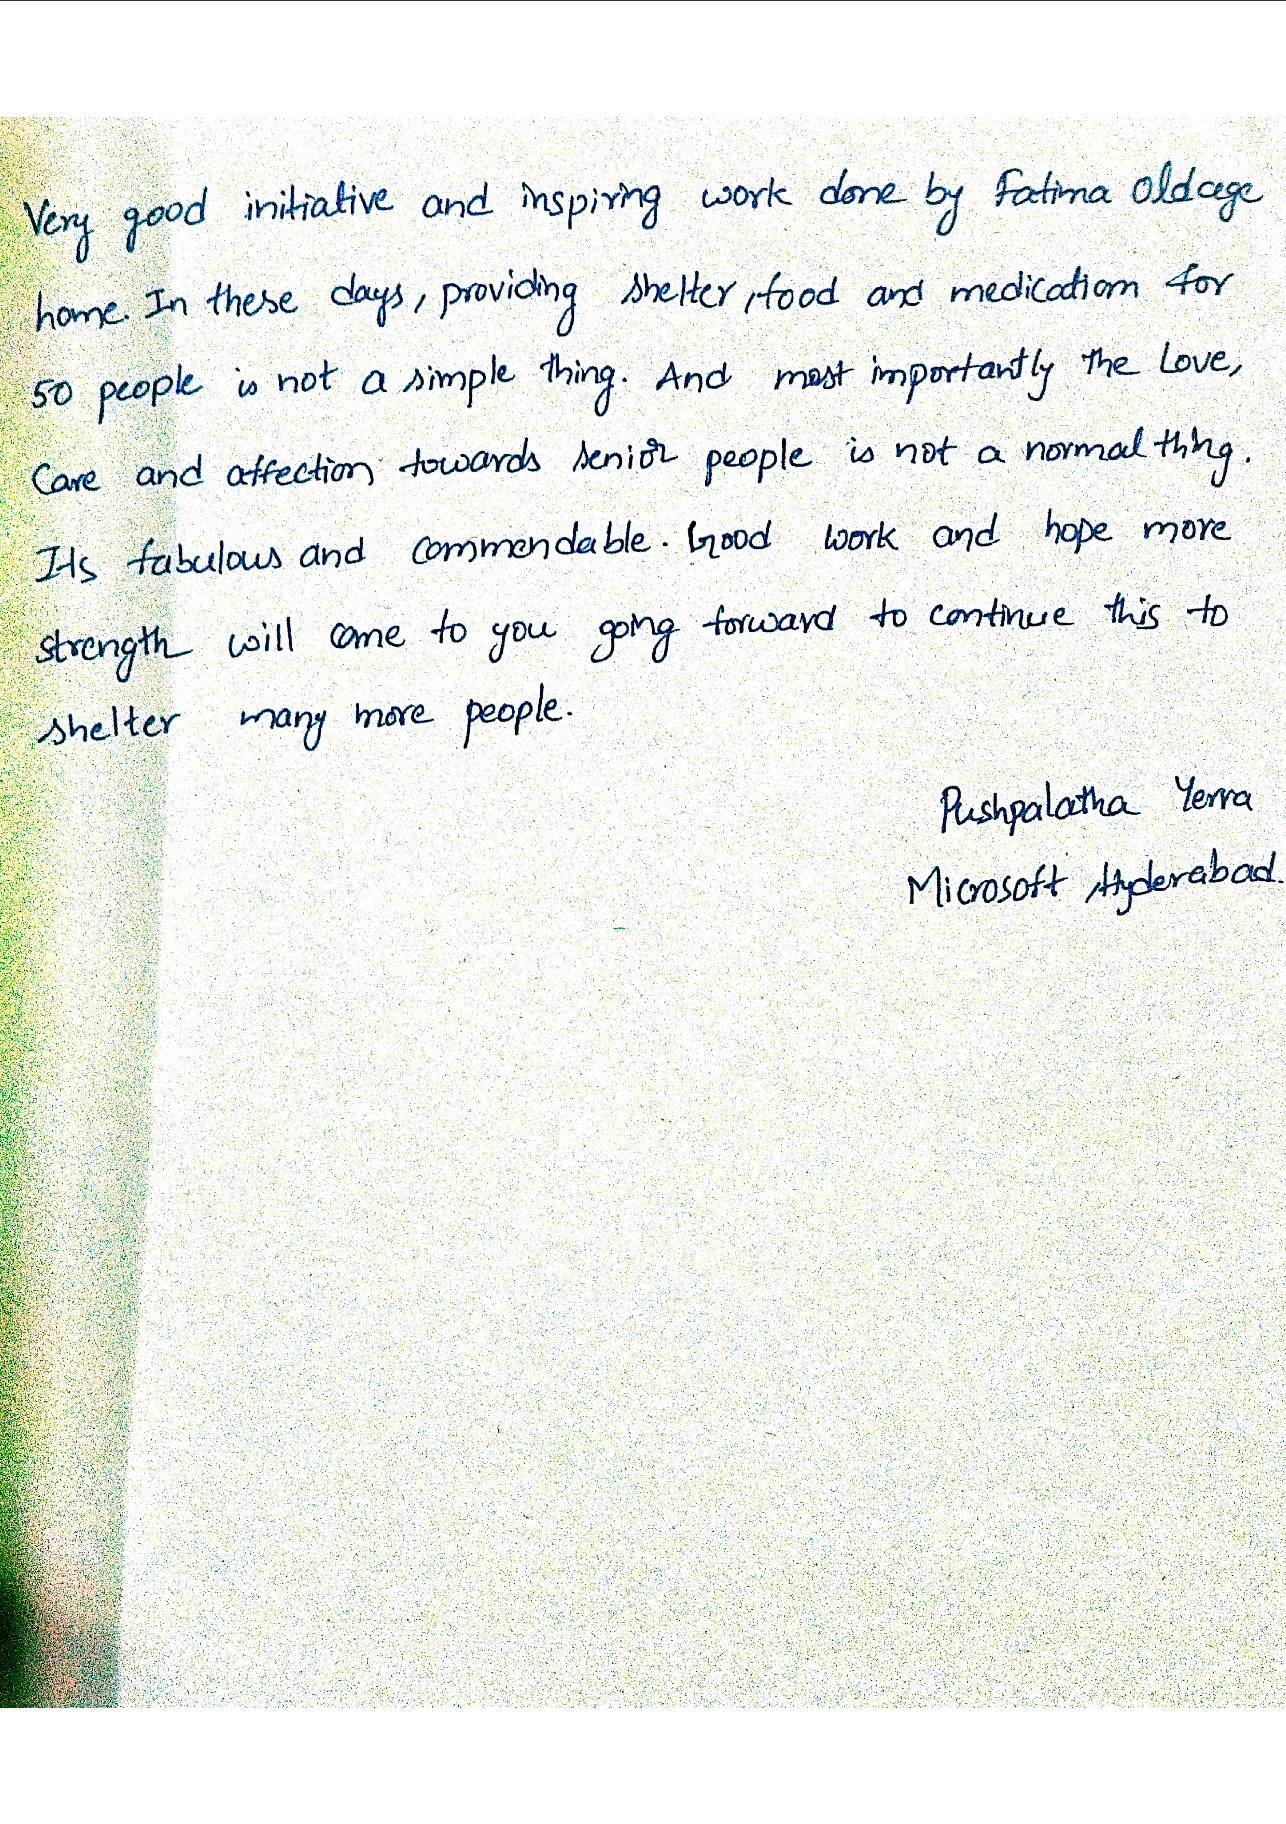 Very good initiative and inspiring work done by Fatima Oldage
home. In these days, providing shelter, food and medication for
50 people is not a simple thing. And most importantly the Love,
Care and affection towards senior people is not a normal thing.
Its fabulous and commendable. Good work and hope more
strength will come to you going forward to continue this to
shelter many more people.
Pushpalatha Yerra
Microsoft Hyderabad.